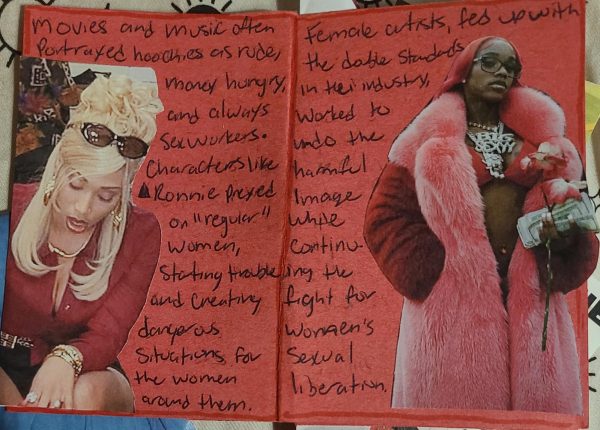 Movies and music often
Portrayed hoochies as rude,
money hungry,
and always
sexworkers.
Characters like
Ronnie preyed
on "regular"
women,
starting trouble
and creating
dangerous
situations for
the women
around them.
Female artists, fed up with
the double standards
in their industry,
worked to
undo the
harmful
image
while
continu-
ing the
fight for
women's
sexual
liberation.